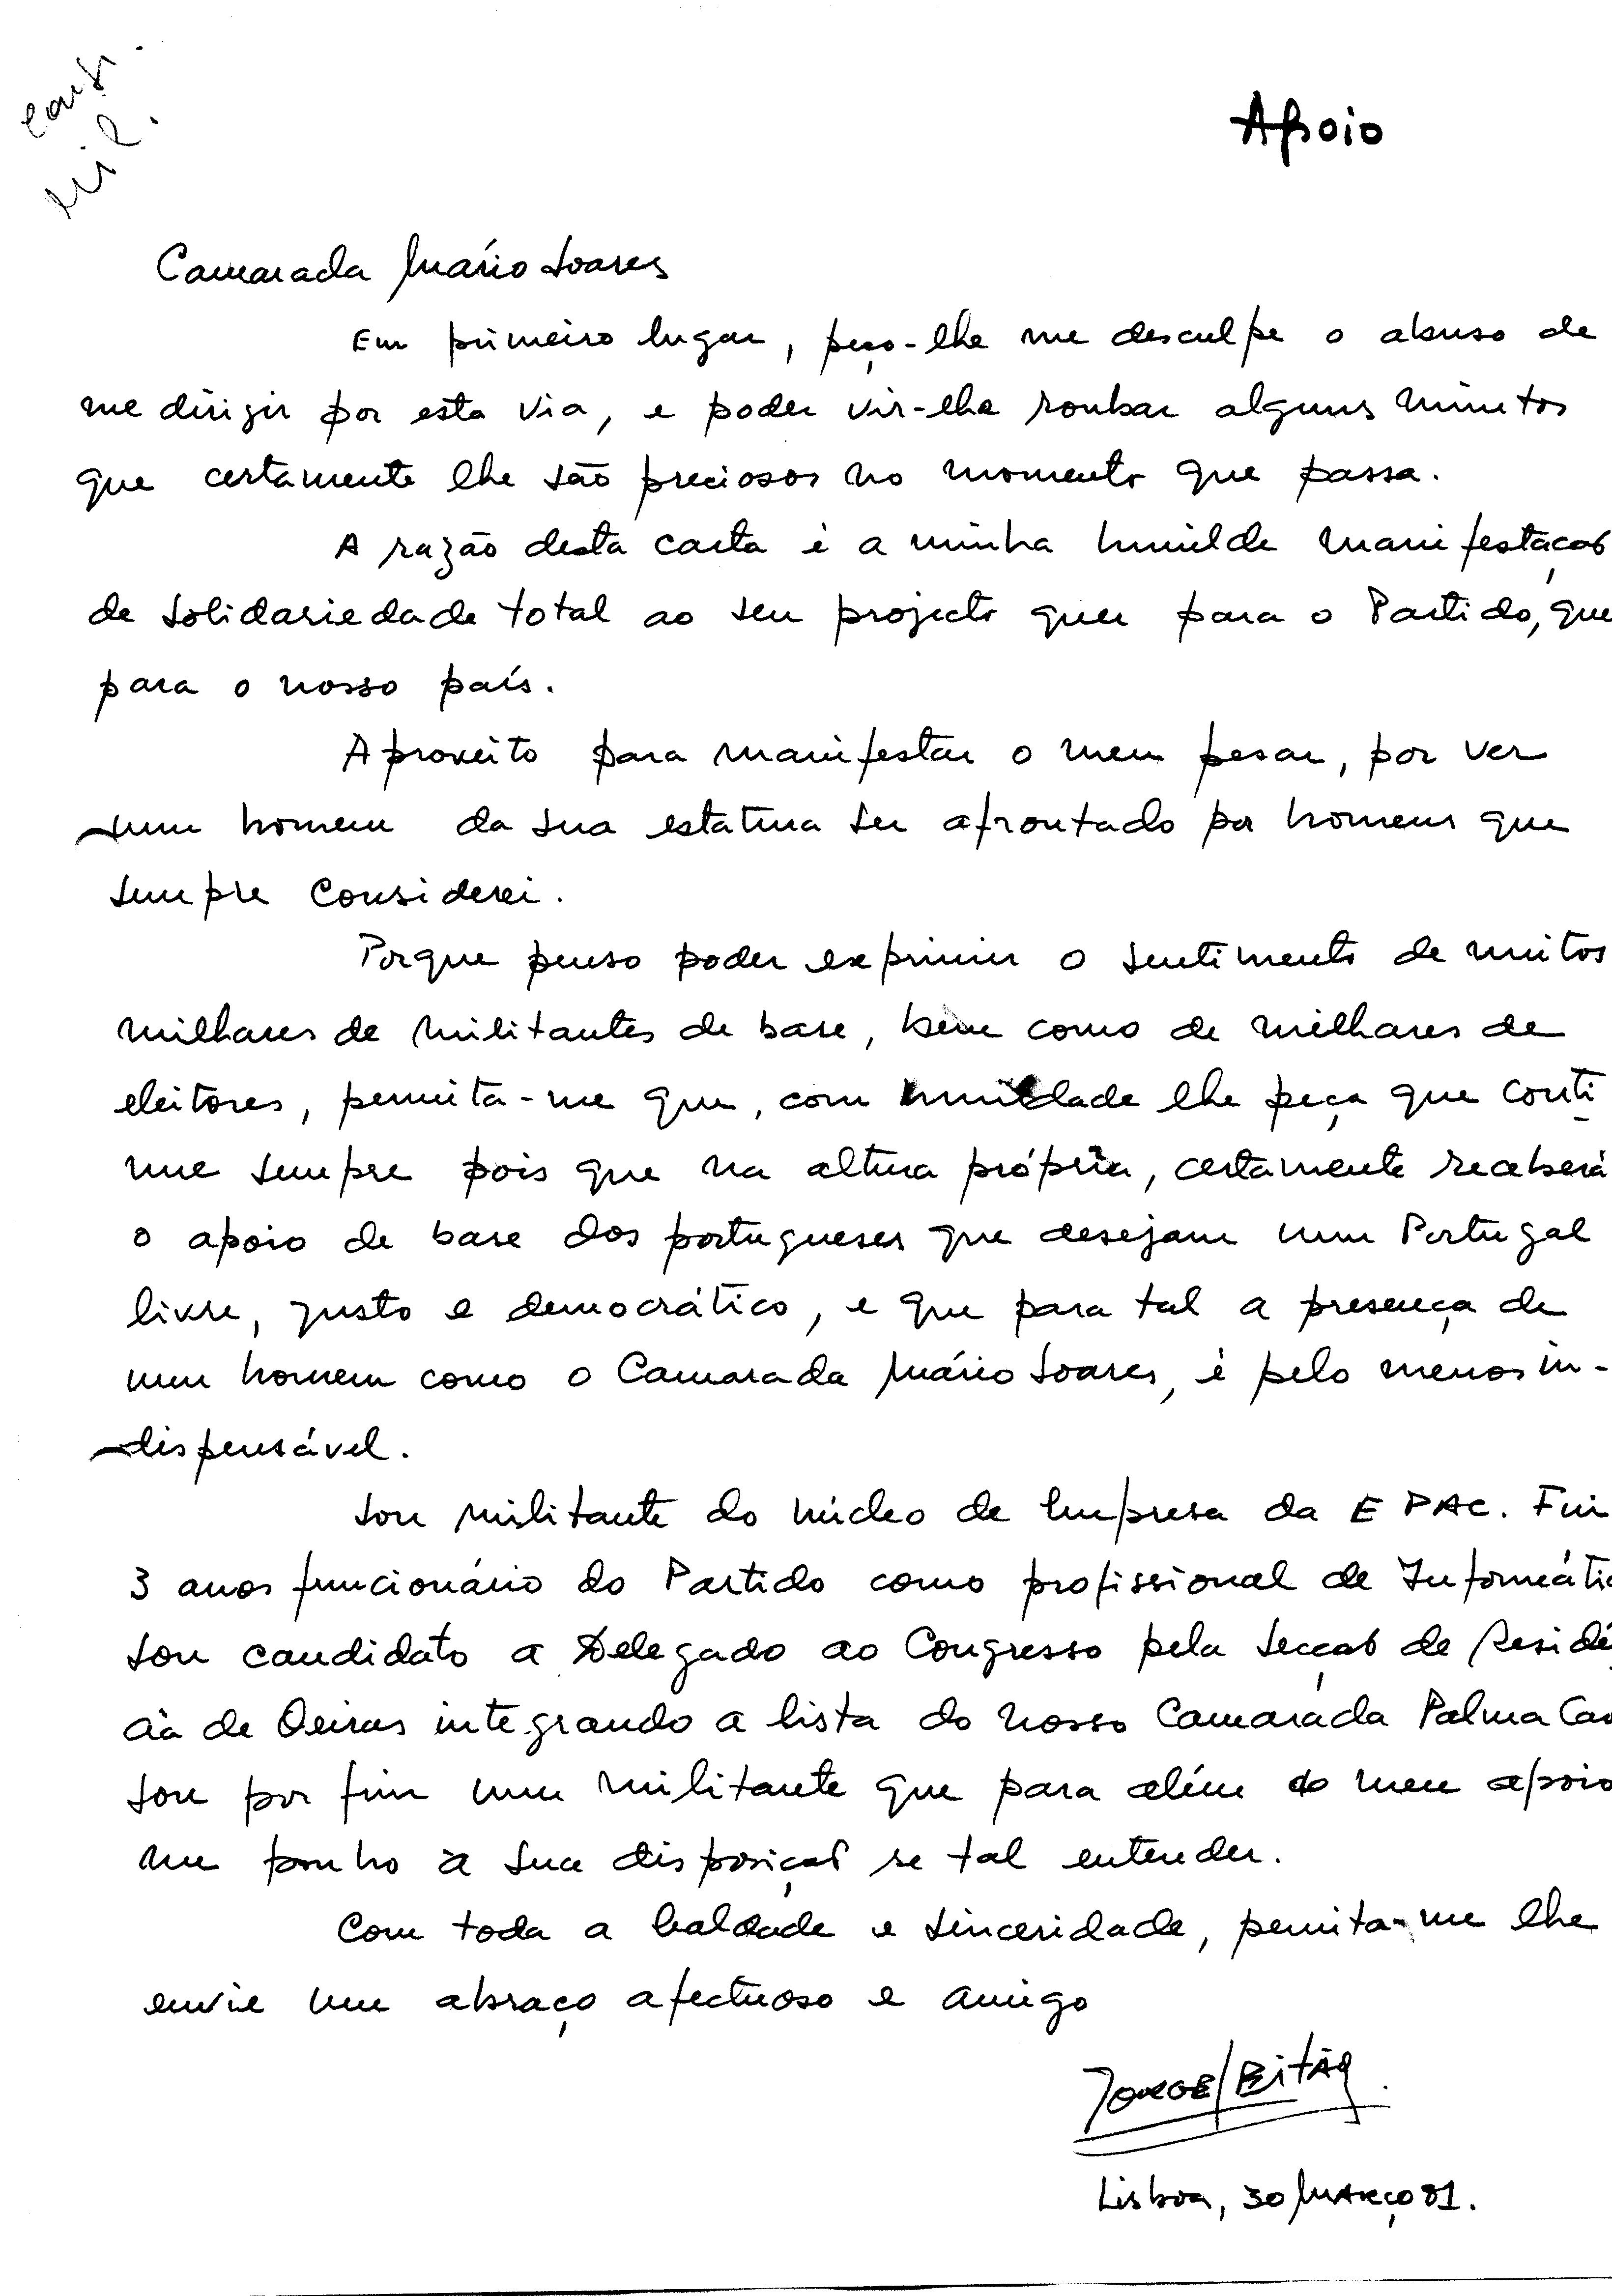 Apoio
Camarada Mário Soares
Em primeiro lugar, peço-lhe me desculpe o abuso de
me dirigir por esta via, e poder vir-lhe roubar alguns minutos
que certamente lhe são preciosos no momento que passa.
A razão desta carta é a minha humilde manifestação
de solidariedade total ao seu projecto quer para o Partido, que
para o nosso país.
Aproveito para manifestar o meu pesar, por ver
um homem da sua estatura ser afrontado por homens que
sempre considerei.
Porque penso poder exprimir o sentimento de muitos
milhares de militantes de base, bem como de milhares de
eleitores, permita-me que, com humildade lhe peça que conti
nue sempre pois que na altura própria, certamente receberá
o apoio de base dos portugueses que desejam um Portugal
livre, justo e democrático, e que para tal a presença de
um homem como o Camarada Mário Soares, é pelo menos in-
dispensável.
Sou militante do núcleo de Empresa da EPAC. Fui
3 anos funcionário do Partido como profissional de Informátic
Sou candidato a Delegado ao Congresso pela secção de Residê
cia de Oeiras integrando a lista do nosso Camarada Palma
Sou por fim um militante que para além do meu apoio
me ponho à sua disposição se tal entender.
Com toda a lealdade e sinceridade, permita-me lhe
envie um abraço afectuoso e amigo
Lisboa, 30/MARÇO 81.